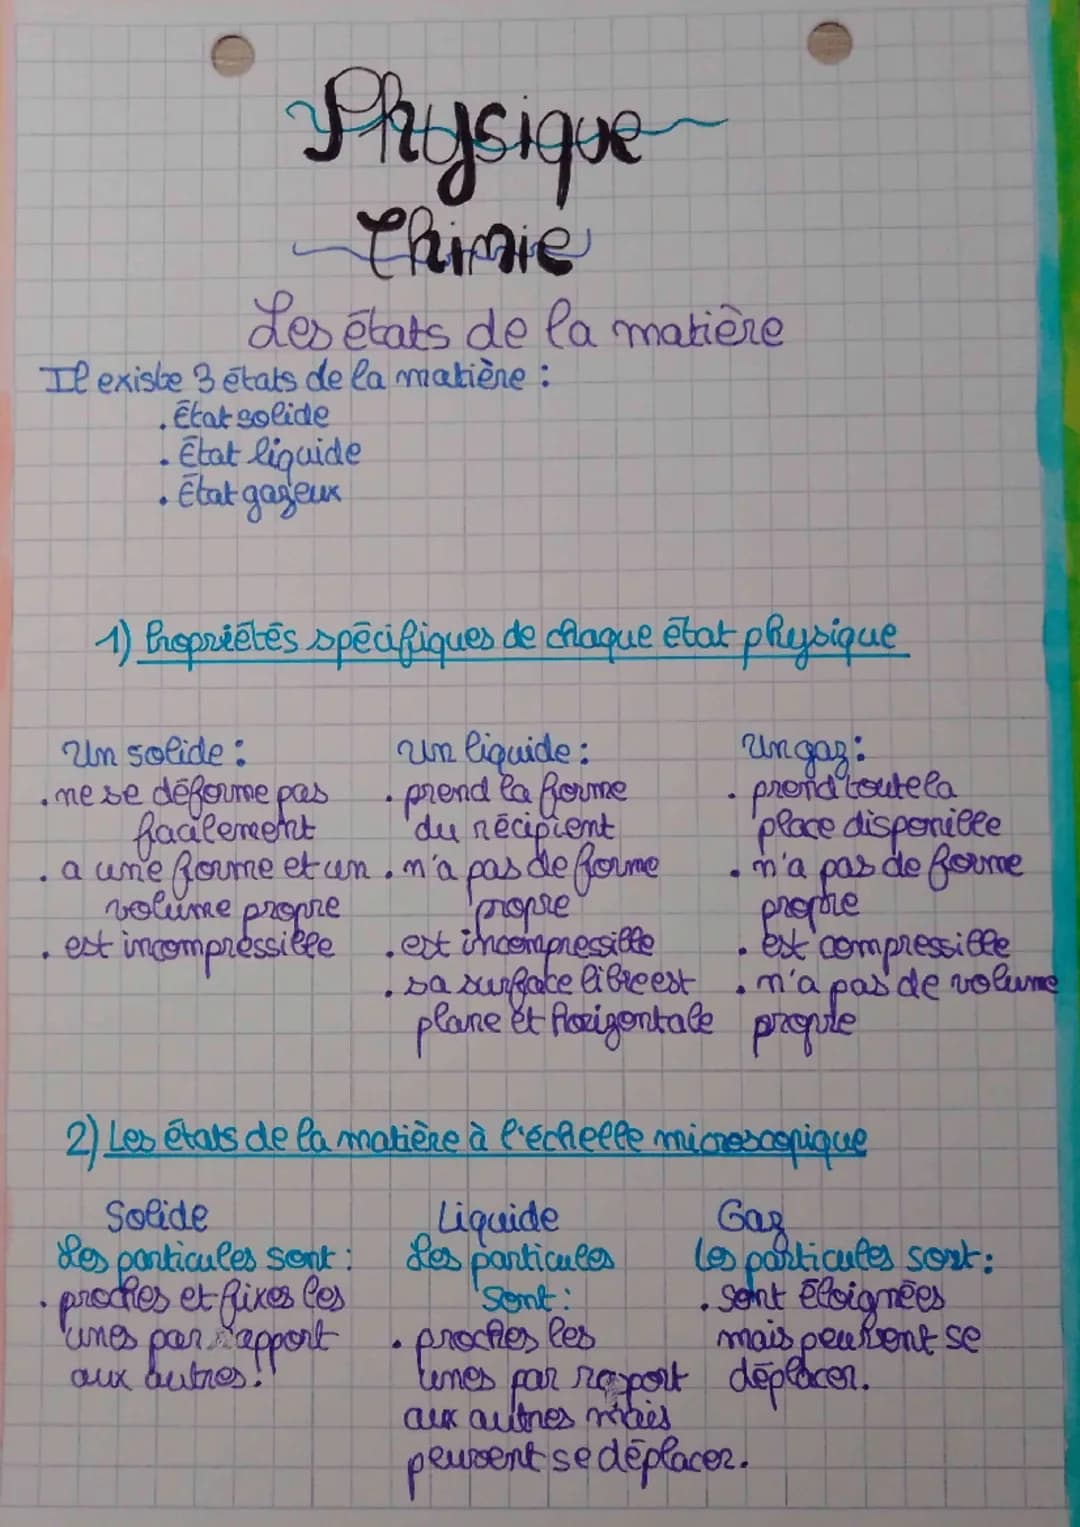 Physique
Chimie
Les états de la matière
Il existe 3 états de la matière :
. État solide
. État liquide
. État gazeux
1) Propriétés spécifiques de chaque état physique
Un solide :
. ne se déforme pas
facilement
. a une forme et un
volume propre
. est incompressible
Un liquide :
. prend la forme
du récipient
. n'a pas de forme
propre
. est incompressible
. sa surface libre est
plane et horizontale
Un gaz :
. prend toute la
place disponible
. n'a pas de forme
propre
. est compressible
. n'a pas de volume
propre
2) Les états de la matière à l'échelle microscopique
Solide
Les particules sont :
. proches et fixes les
unes par rapport
aux autres.
Liquide
Les particules
sont :
. proches les
unes par rapport
aux autres mais
peuvent se déplacer.
Gaz
Les particules sont :
. sont éloignées
mais peuvent se
déplacer.